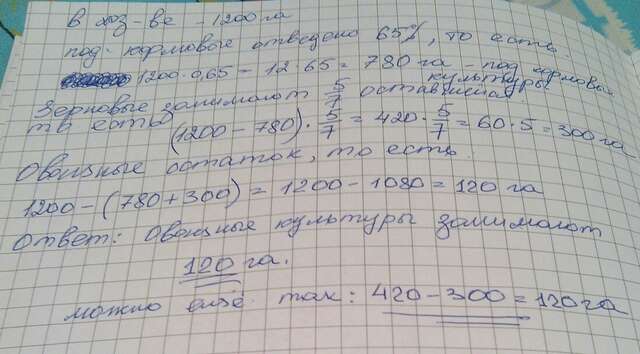 В хоз-ве - 1200 га
под кормовые отведено 65%, то есть
1200·0,65 = 12·65 = 780 га - под кормовые
культуры.
Зерновые занимают 5/7 оставшейся,
то есть
(1200 - 780)·5/7 = 420·5/7 = 60·5 = 300 га
Овощные остаток, то есть
1200 - (780 + 300) = 1200 - 1080 = 120 га
Ответ: Овощные культуры занимают
120 га.
можно ещё так: 420 - 300 = 120 га